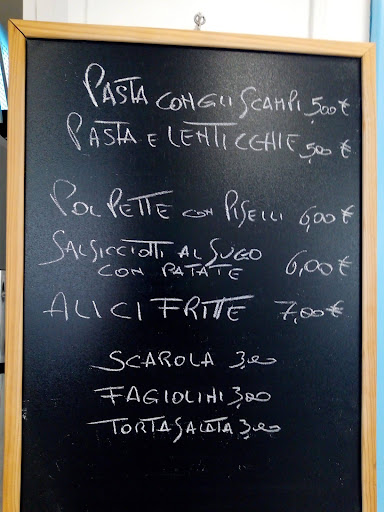 PASTA CON GLI SCAMPI 5,00 €
PASTA E LENTICCHIE 5,00 €
POLPETTE CON PISELLI 6,00 €
SALSICCIOTTI AL SUGO
CON PATATE 6,00 €
ALICI FRITTE 7,00 €
SCAROLA 3,00
FAGIOLINI 3,00
TORTA SALATA 3,00